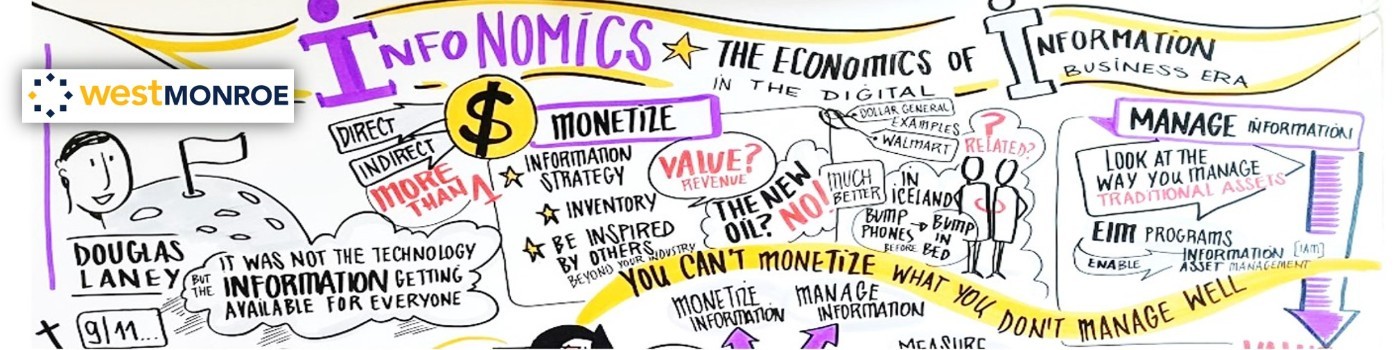 INFONOMICS
THE ECONOMICS OF INFORMATION
IN THE DIGITAL BUSINESS ERA
westMONROE
DOUGLAS
LANEY
9/11...
IT WAS NOT THE TECHNOLOGY
BUT THE INFORMATION GETTING
AVAILABLE FOR EVERYONE
DIRECT
INDIRECT
MORE
THAN 1
$
MONETIZE
INFORMATION
STRATEGY
INVENTORY
BE INSPIRED
BY OTHERS
BEYOND YOUR INDUSTRY
VALUE?
REVENUE
THE NEW
OIL? NO!
MUCH
BETTER
DOLLAR GENERAL
EXAMPLES
• WALMART
IN
ICELAND
BUMP
PHONES
BEFORE
BUMP
IN
BED
?
RELATED?
MANAGE INFORMATION
LOOK AT THE
WAY YOU MANAGE
TRADITIONAL ASSETS
EIM PROGRAMS
ENABLE
INFORMATION [IAM]
ASSET MANAGEMENT
YOU CAN'T MONETIZE WHAT YOU DON'T MANAGE WELL
MONETIZE
INFORMATION
MANAGE
INFORMATION
MEASURE